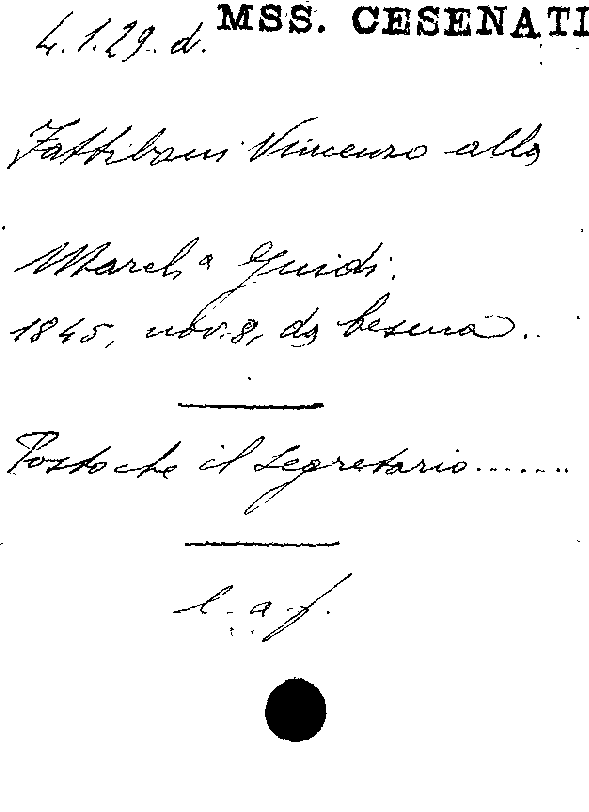 4.1.29.d. MSS. CESENATI
Fattiboni Vincenzo alla
March.a Guidi.
1845, nov. 8, da Cesena.
Postoche il segretario.......
l. a. f.